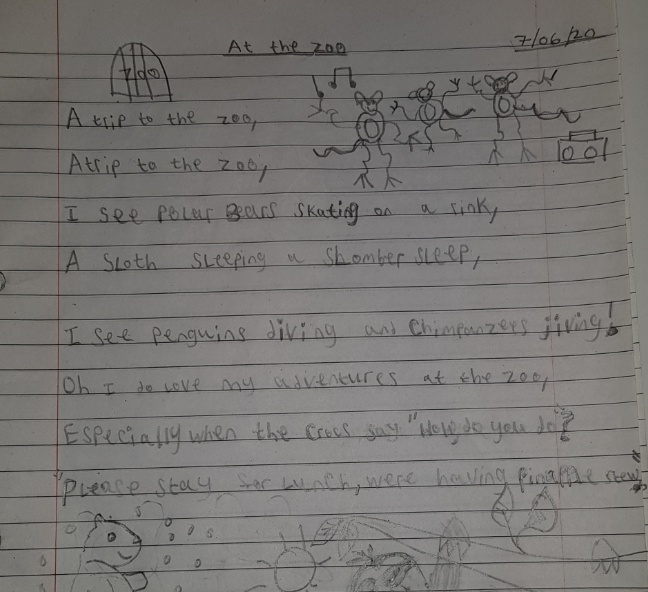 At the zoo
7/06/20
zoo
A trip to the zoo,
A trip to the zoo,
I see Polar Bears skating on a rink,
A Sloth sleeping a slomber sleep,
I see penguins diving and chimpanzees jiving!
Oh I do love my adventures at the zoo,
Especially when the crocs say "How do you do?
"Please stay for lunch, were having pinapple stew"